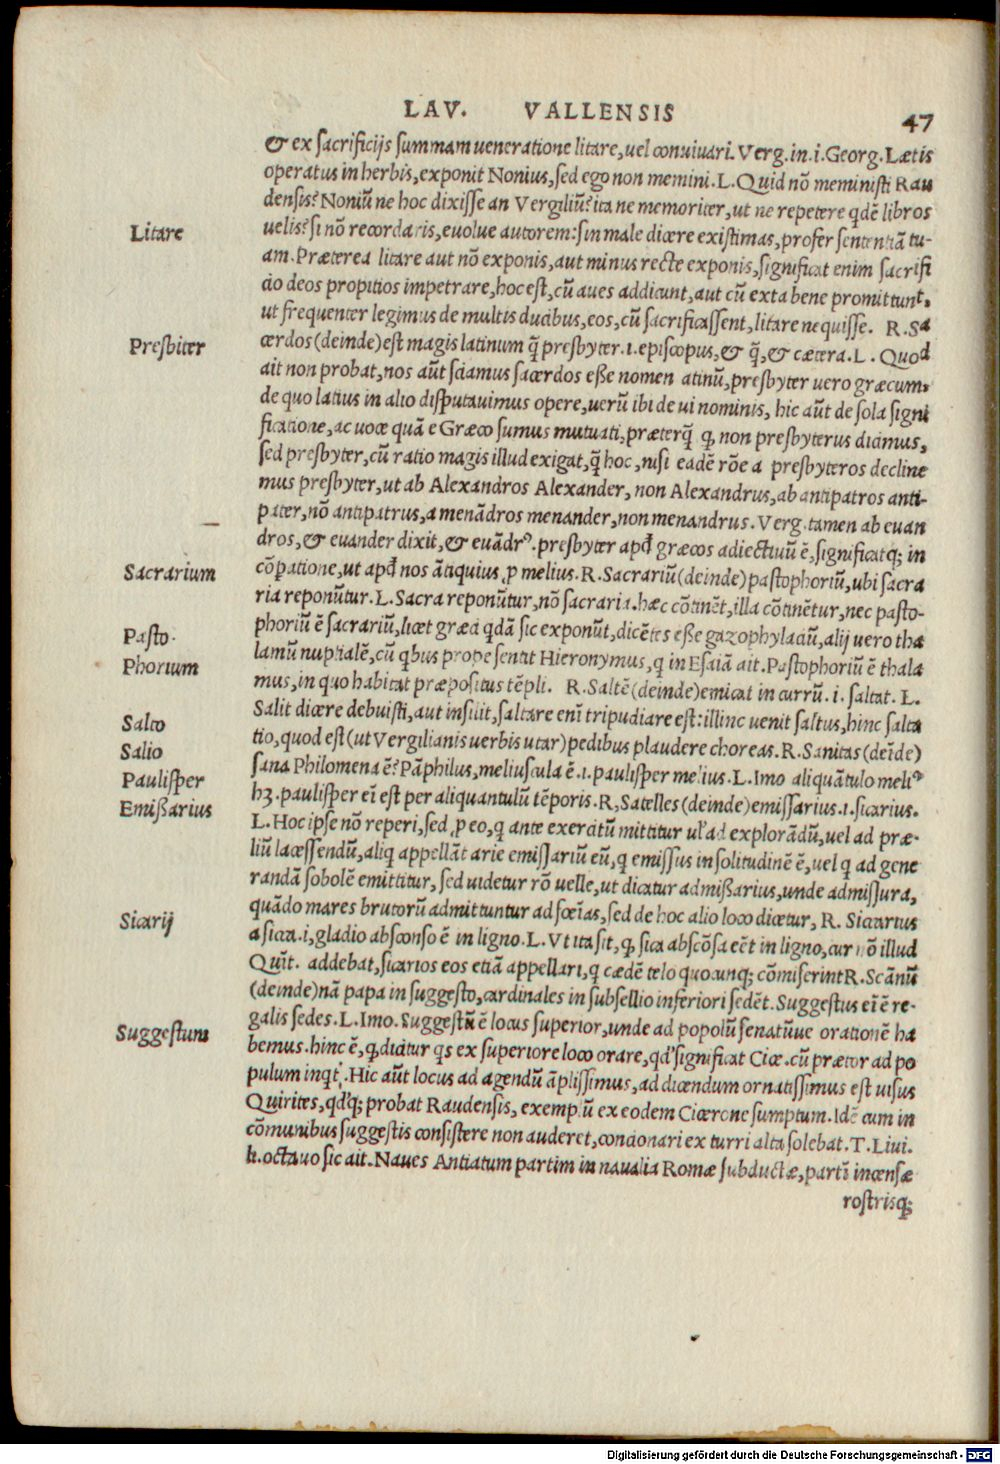 LAV. VALLENSIS 47
& ex sacrificijs summam ueneratione litare, uel conuiuari. Verg. in .i. Georg. Lætis
operatus in herbis, exponit Nonius, sed ego non memini. L. Quid nō meministi Rau
densis? Noniū ne hoc dixisse an Vergiliū? ita ne memoriter, ut ne repetere qdē libros
Litare
uelis? si nō recordaris, euolue autorem: sin male dicere existimas, profer sententiā tu-
am. Præterea litare aut nō exponis, aut minus recte exponis, significat enim sacrifi
cio deos propitios impetrare, hoc est, cū aues addicunt, aut cū exta bene promittunt,
ut frequenter legimus de multis ducibus, eos, cū sacrificassent, litare nequisse. R. Sa
Presbiter
cerdos (deinde) est magis latinum q̄ presbyter .i. episcopus, & q̄, & cætera. L. Quod
ait non probat, nos aūt sciamus sacerdos eße nomen atinū, presbyter uero græcum,
de quo latius in alio disputauimus opere, uerū ibi de ui nominis, hic aūt de sola signi
ficatione, ac uoce quā e Græco sumus mutuati, præterq̄ ꝙ non presbyterus dicimus,
sed presbyter, cū ratio magis illud exigat, q̄ hoc, nisi eadē rōe a presbyteros decline
mus presbyter, ut ab Alexandros Alexander, non Alexandrus, ab antipatros anti-
pater, nō antipatrus, a menādros menander, non menandrus. Verg. tamen ab euan
dros, & euander dixit, & euādrꝰ. presbyter apđ græcos adiectiuū ē, significatq; in
Sacrarium
cōꝑatione, ut apđ nos ātiquius, ꝓ melius. R. Sacrariū (deinde) pastophoriū, ubi sacra
ria reponūtur. L. Sacra reponūtur, nō sacraria. hæc cōtinēt, illa cōtinētur, nec pasto-
Pasto-
phoriū ē sacrariū, licet græci qdā sic exponūt, dicētes eße gazophylaciū, alij uero tha
Phorium
lamū nuptialē, cū qbus prope sentit Hieronymus, q in Esaiā ait. Pastophoriū ē thala
mus, in quo habitat præpositus tēpli. R. Saltē (deinde) emicat in currū. i. saltat. L.
Salto
Salit dicere debuisti, aut insilit, saltare enī tripudiare est: illinc uenit saltus, hinc salta
Salio
tio, quod est (ut Vergilianis uerbis utar) pedibus plaudere choreas. R. Sanitas (deīde)
Paulisper
sana Philomena ē? Pāphilus, meliuscula ē .i. paulisper melius. L. Imo aliquātulo meliꝰ
Emißarius
hꝫ. paulisper eī est per aliquantulū tēporis. R, Satelles (deinde) emissarius .i. sicarius.
L. Hoc ipse nō reperi, sed ꝓ eo, q ante exercitū mittitur ul' ad explorādū, uel ad præ-
liū lacessendū, aliq appellāt arie emissariū eū, q emissus in solitudinē ē, uel q ad gene
randā sobolē emittitur, sed uidetur rō uelle, ut dicatur admißarius, unde admissura,
quādo mares brutorū admittuntur ad fœīas, sed de hoc alio loco dicetur, R. Sicarius
Sicarij
a sica. i, gladio absconso ē in ligno. L. Vt ita sit, ꝙ sica abscōsa eēt in ligno, cur nō illud
Quīt. addebat, sicarios eos etiā appellari, q cædē telo quocunq; cōmiserint R. Scānū
(deinde) nā papa in suggesto, cardinales in subsellio inferiori sedēt. Suggestus eī ē re-
Suggestum
galis sedes. L. Imo. Suggestū ē locus superior, unde ad populū senatūue orationē ha
bemus. hinc ē, ꝙ dicitur qs ex superiore loco orare, qđ significat Cice. cū prætor ad po
pulum inqt. Hic aūt locus ad agendū āplissimus, ad dicendum ornatissimus est uisus
Quirites, qđq; probat Raudensis, exemplū ex eodem Cicerone sumptum. Idē cum in
cōmunibus suggestis consistere non auderet, concionari ex turri alta solebat. T. Liui.
li. octauo sic ait. Naues Antiatum partim in naualia Romæ subductæ, partī incensæ
rostrisq;
Digitalisierung gefördert durch die Deutsche Forschungsgemeinschaft - DFG